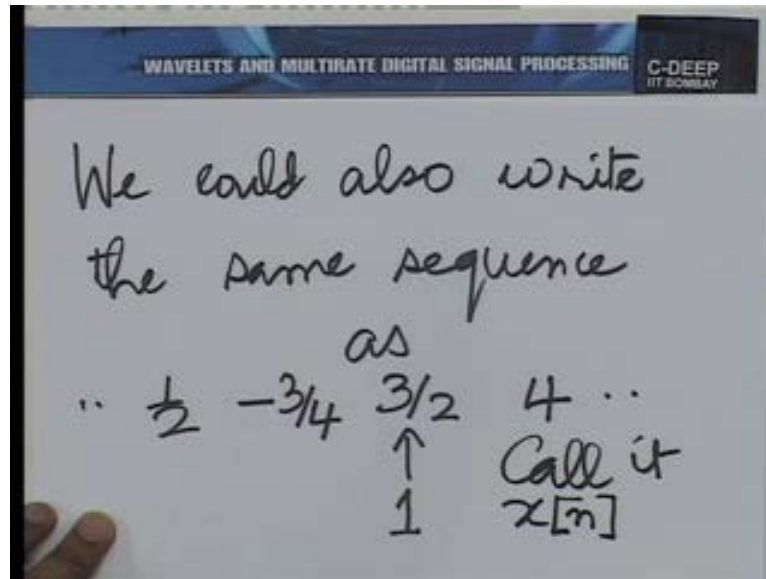 WAVELETS AND MULTIRATE DIGITAL SIGNAL PROCESSING
C-DEEP
IIT BOMBAY
We could also write
the same sequence
as
.. 1/2 -3/4 3/2 4 ..
↑ Call it
1 x[n]